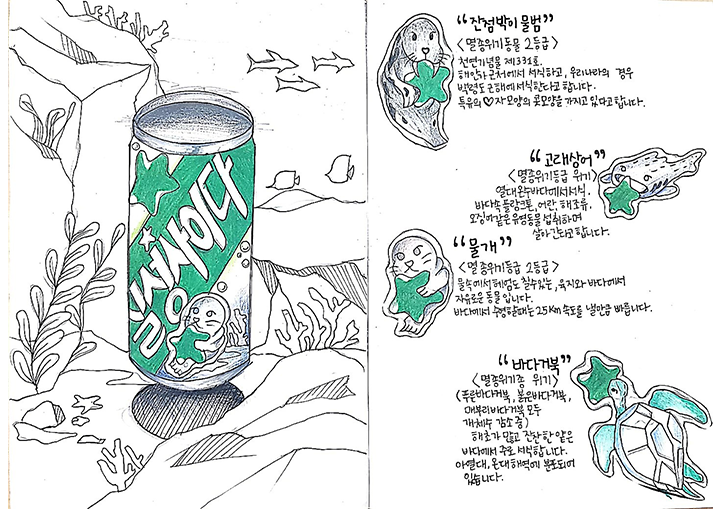 칠성사이다
“점박이 물범”
<멸종위기동물 2등급>
천연기념물 제331호.
해안가 근처에서 서식하고, 우리나라의 경우
백령도 근해에서 서식한다고 합니다.
특유의 ♡자 모양의 콧모양을 가지고 있다고 합니다.
“고래상어”
<멸종위기등급 위기>
열대 온수 바다에서 서식.
바다속 플랑크톤, 어란, 해조류,
오징어같은 유영동물 섭취하며
살아간다고 합니다.
“물개”
<멸종위기등급 2등급>
물속에서 헤엄도 칠수있는, 육지와 바다에서
자유로운 동물입니다.
바다에서 수영할때는 25km 속도를 낼만큼 빠릅니다.
“바다거북”
<멸종위기종 위기>
(푸른바다거북, 붉은바다거북,
매부리바다거북 모두
개체수 감소중)
해초가 많고 잔잔한 얕은
바다에서 주로 서식합니다.
아열대, 온대 해역에 분포되어
있습니다.